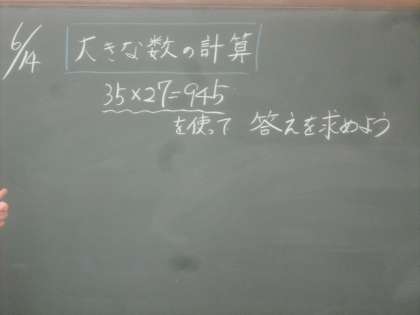 6/14
大きな数の計算
35×27=945
を使って 答えを求めよう